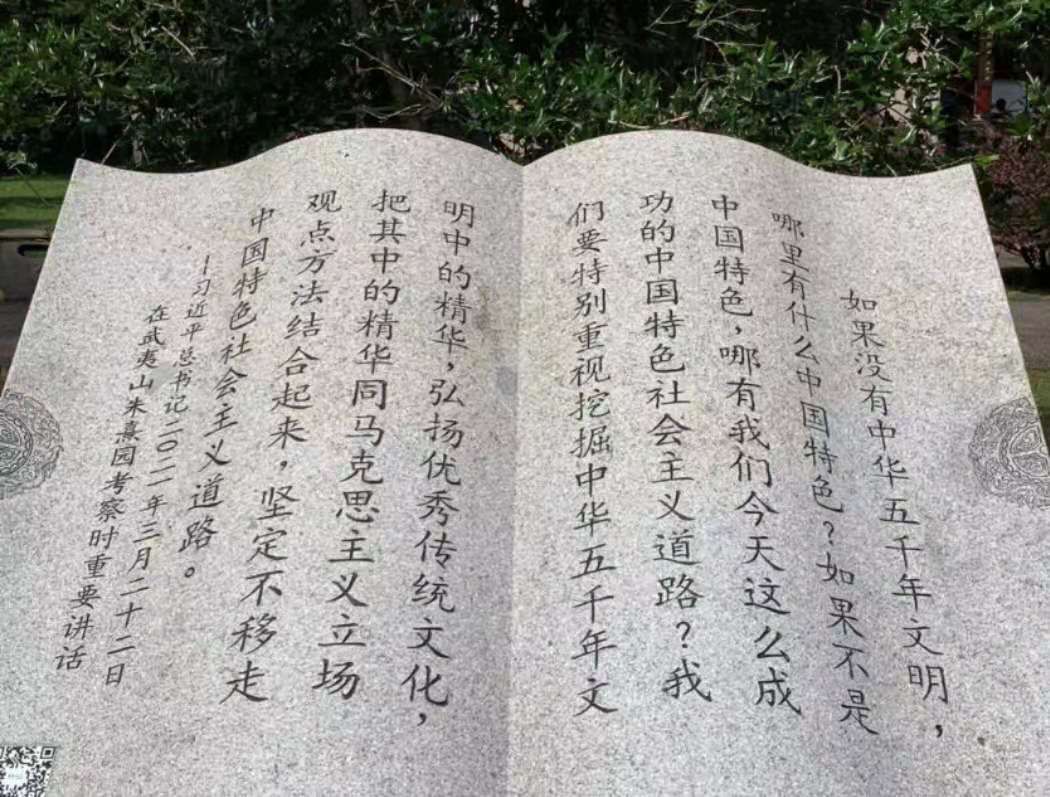 如果没有中华五千年文明，
哪里有什么中国特色？如果不是
中国特色，哪有我们今天这么成
功的中国特色社会主义道路？我
们要特别重视挖掘中华五千年文
明中的精华，弘扬优秀传统文化，
把其中的精华同马克思主义立场
观点方法结合起来，坚定不移走
中国特色社会主义道路。
—习近平总书记二〇二一年三月二十二日
在武夷山朱熹园考察时重要讲话